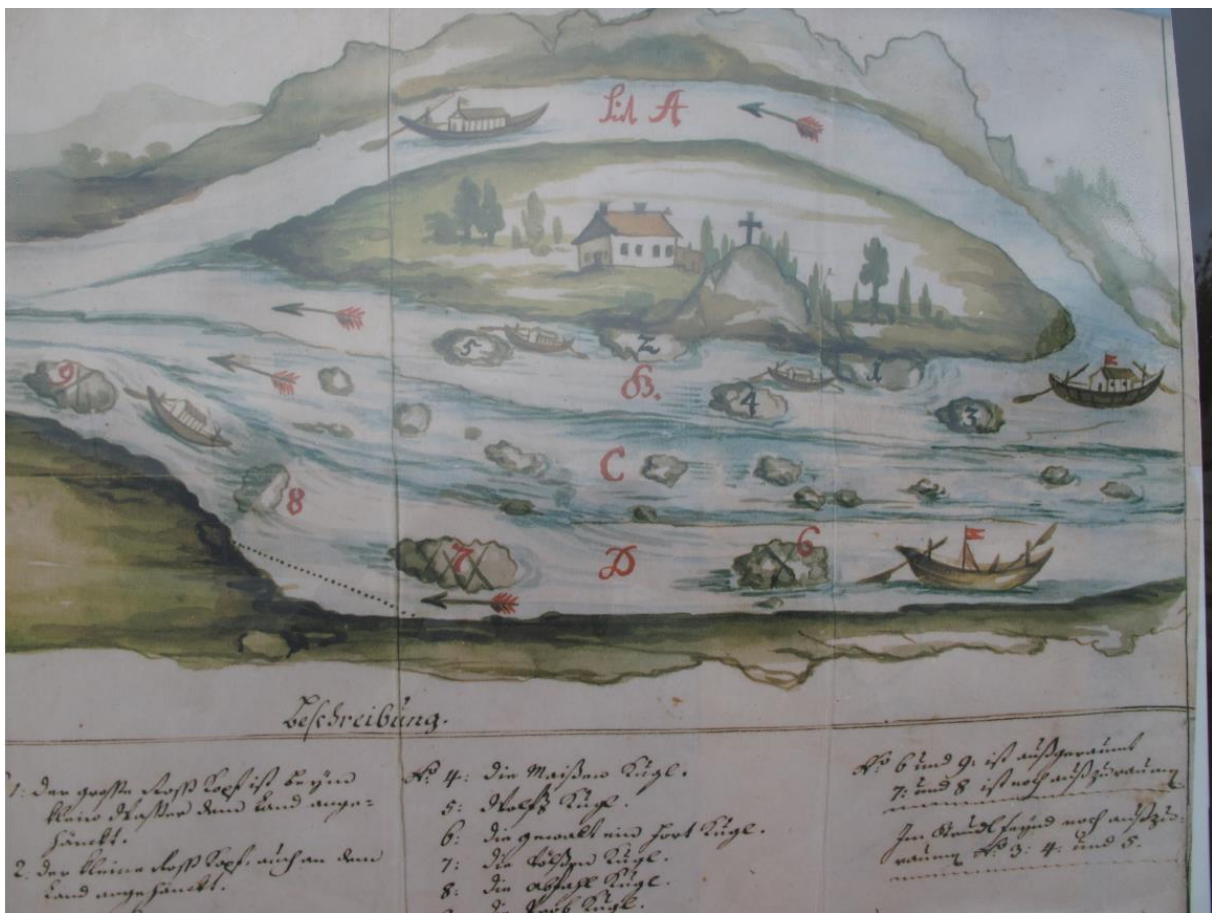 Lit A
5
2
B.
1
9
4
3
C
8
7
D
6
Beschreibung.
1: der grosse Ross Kopf ist beÿm
Wasser dem Land ange=
hänckt.
2. der kleine Ross Kopf, auch an dem
Land angehänckt.
No 4: die Maißen Kugl.
5: Kugl.
6: die gewalt Kugl.
7: die Kugl.
8: die Kugl.
die Kugl.
No 6 und 9: ist außgeraumt
7: und 8 ist noch außzuraumen
Im Strudl seynd noch außzu-
raumen No 3: 4: und 5.